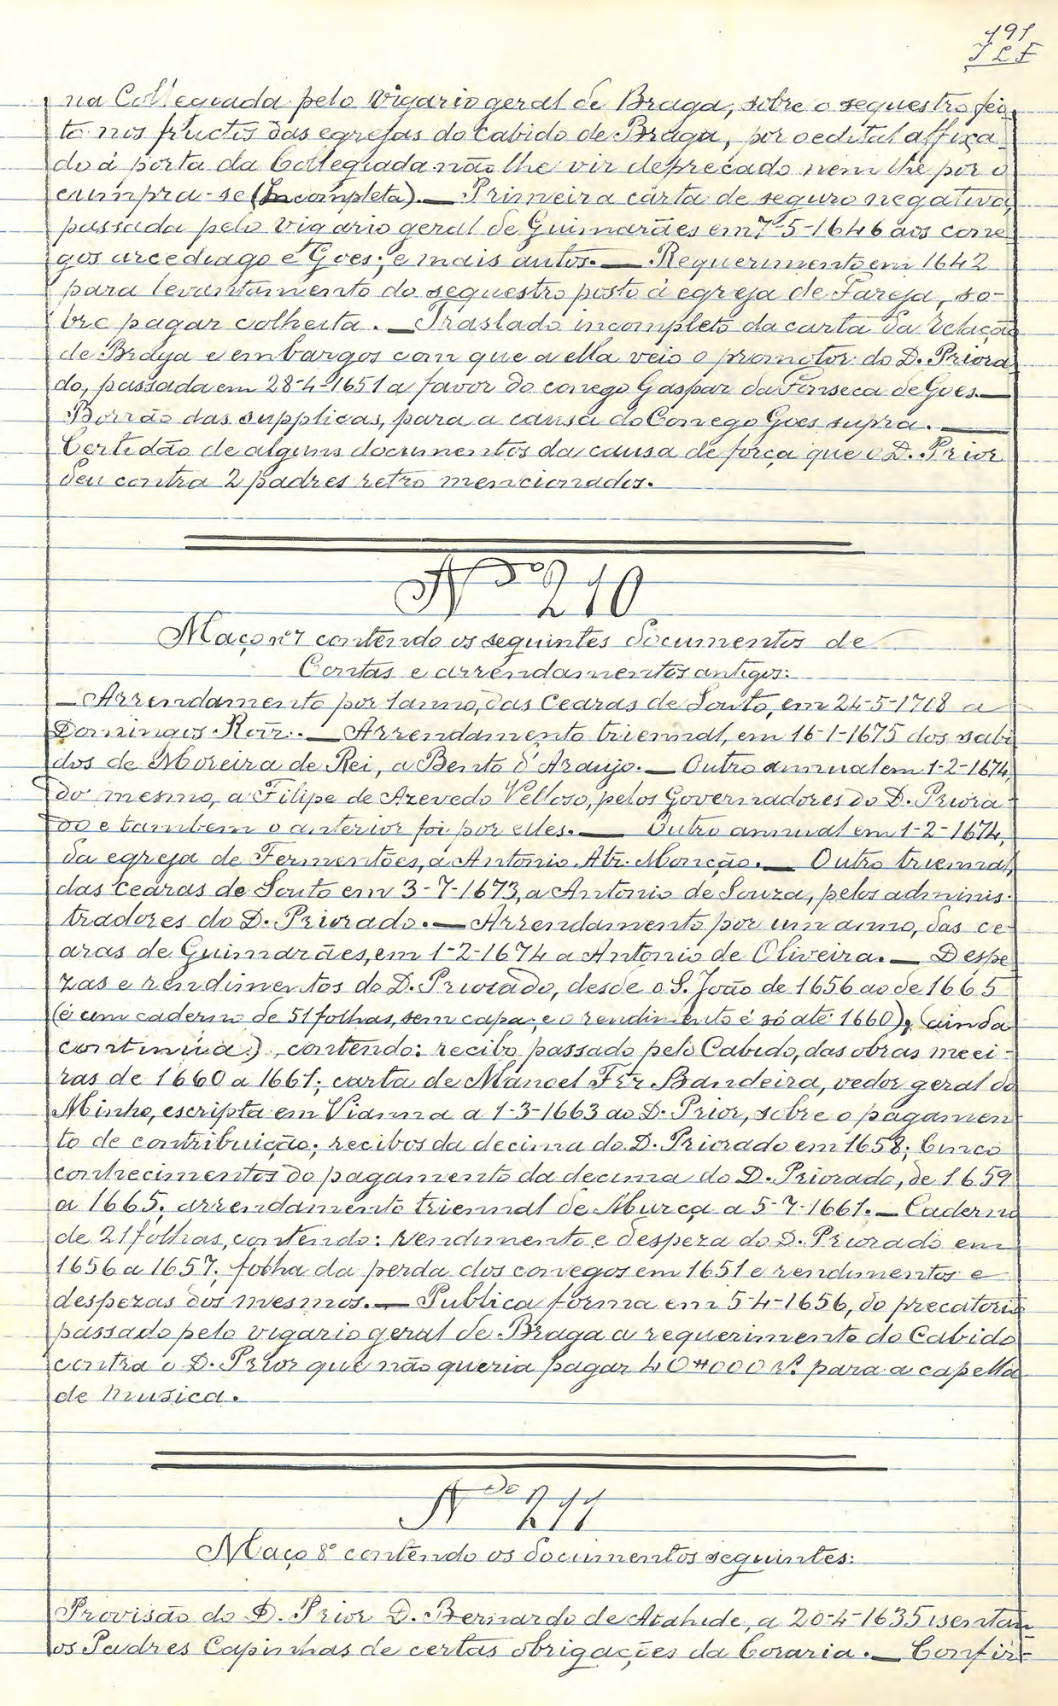 191
J L F
na Collegiada pelo Vigario geral de Braga, sobre o sequestro fei-
to nos fructos das egrejas do Cabido de Braga, por o edital affixa-
do á porta da Collegiada não lhe vir deprecado nem lhe por o
cumpra-se (Incompleta). — Primeira carta de seguro negativa,
passada pelo vigario geral de Guimarães em 7-5-1646 aos cone-
gos arcediago e Goes; e mais autos. — Requerimento em 1642
para levantamento do sequestro posto á egreja de Fareja, so-
bre pagar colheita. — Traslado incompleto da carta da relação
de Braga e embargos com que a ella veio o promotor do D. Priora-
do, passada em 28-4-1651 a favor do conego Gaspar da Fonseca de Goes. —
Borrão das supplicas, para a causa do Conego Goes supra. —
Certidão de alguns documentos da causa de força que o D. Prior
deu contra 2 padres retro mencionados.
Nº 210
Maço nº 7 contendo os seguintes documentos de
Contas e arrendamentos antigos:
— Arrendamento por 1 anno, das Cearas de Souto, em 24-5-1708 a
Domingos Roiz. — Arrendamento triennal, em 16-1-1675 dos sabi-
dos de Moreira de Rei, a Bento d'Araujo. — Outro annual em 1-2-1674,
do mesmo, a Filipe de Azevedo Velloso, pelos Governadores do D. Priora-
do e tambem o anterior foi por elles. — Outro annual em 1-2-1674,
da egreja de Fermentões, a Antonio Alz. Monção. — Outro triennal,
das cearas de Souto em 3-7-1673, a Antonio de Souza, pelos adminis-
tradores do D. Priorado. — Arrendamento por um anno, das ce-
aras de Guimarães, em 1-2-1674 a Antonio de Oliveira. — Despe-
zas e rendimentos do D. Priorado, desde o S. João de 1656 ao de 1665
(é um caderno de 51 folhas, sem capa; e o rendimento é só até 1660); (ainda
continúa), contendo: recibo passado pelo Cabido, das obras meei-
ras de 1660 a 1661; carta de Manoel Frz Bandeira, vedor geral do
Minho, escripta em Vianna a 1-3-1663 ao D. Prior, sobre o pagamen-
to de contribuição; recibos da decima do D. Priorado em 1658; Cinco
conhecimentos do pagamento da decima do D. Priorado, de 1659
a 1665; arrendamento triennal de Murça a 5-7-1661. — Caderno
de 21 folhas, contendo: rendimento e despeza do D. Priorado em
1656 a 1657; folha da perda dos conegos em 1651 e rendimentos e
despezas dos mesmos. — Publica forma em 5-4-1656, do precatorio
passado pelo vigario geral de Braga a requerimento do Cabido
contra o D. Prior que não queria pagar 40#000 rs. para a capella
de musica.
Nº 211
Maço 8º contendo os documentos seguintes:
Provisão do D. Prior D. Bernardo de Atahide, a 20-4-1635 isentan-
os Padres Capinhas de certas obrigações da Coraria. — Confir-